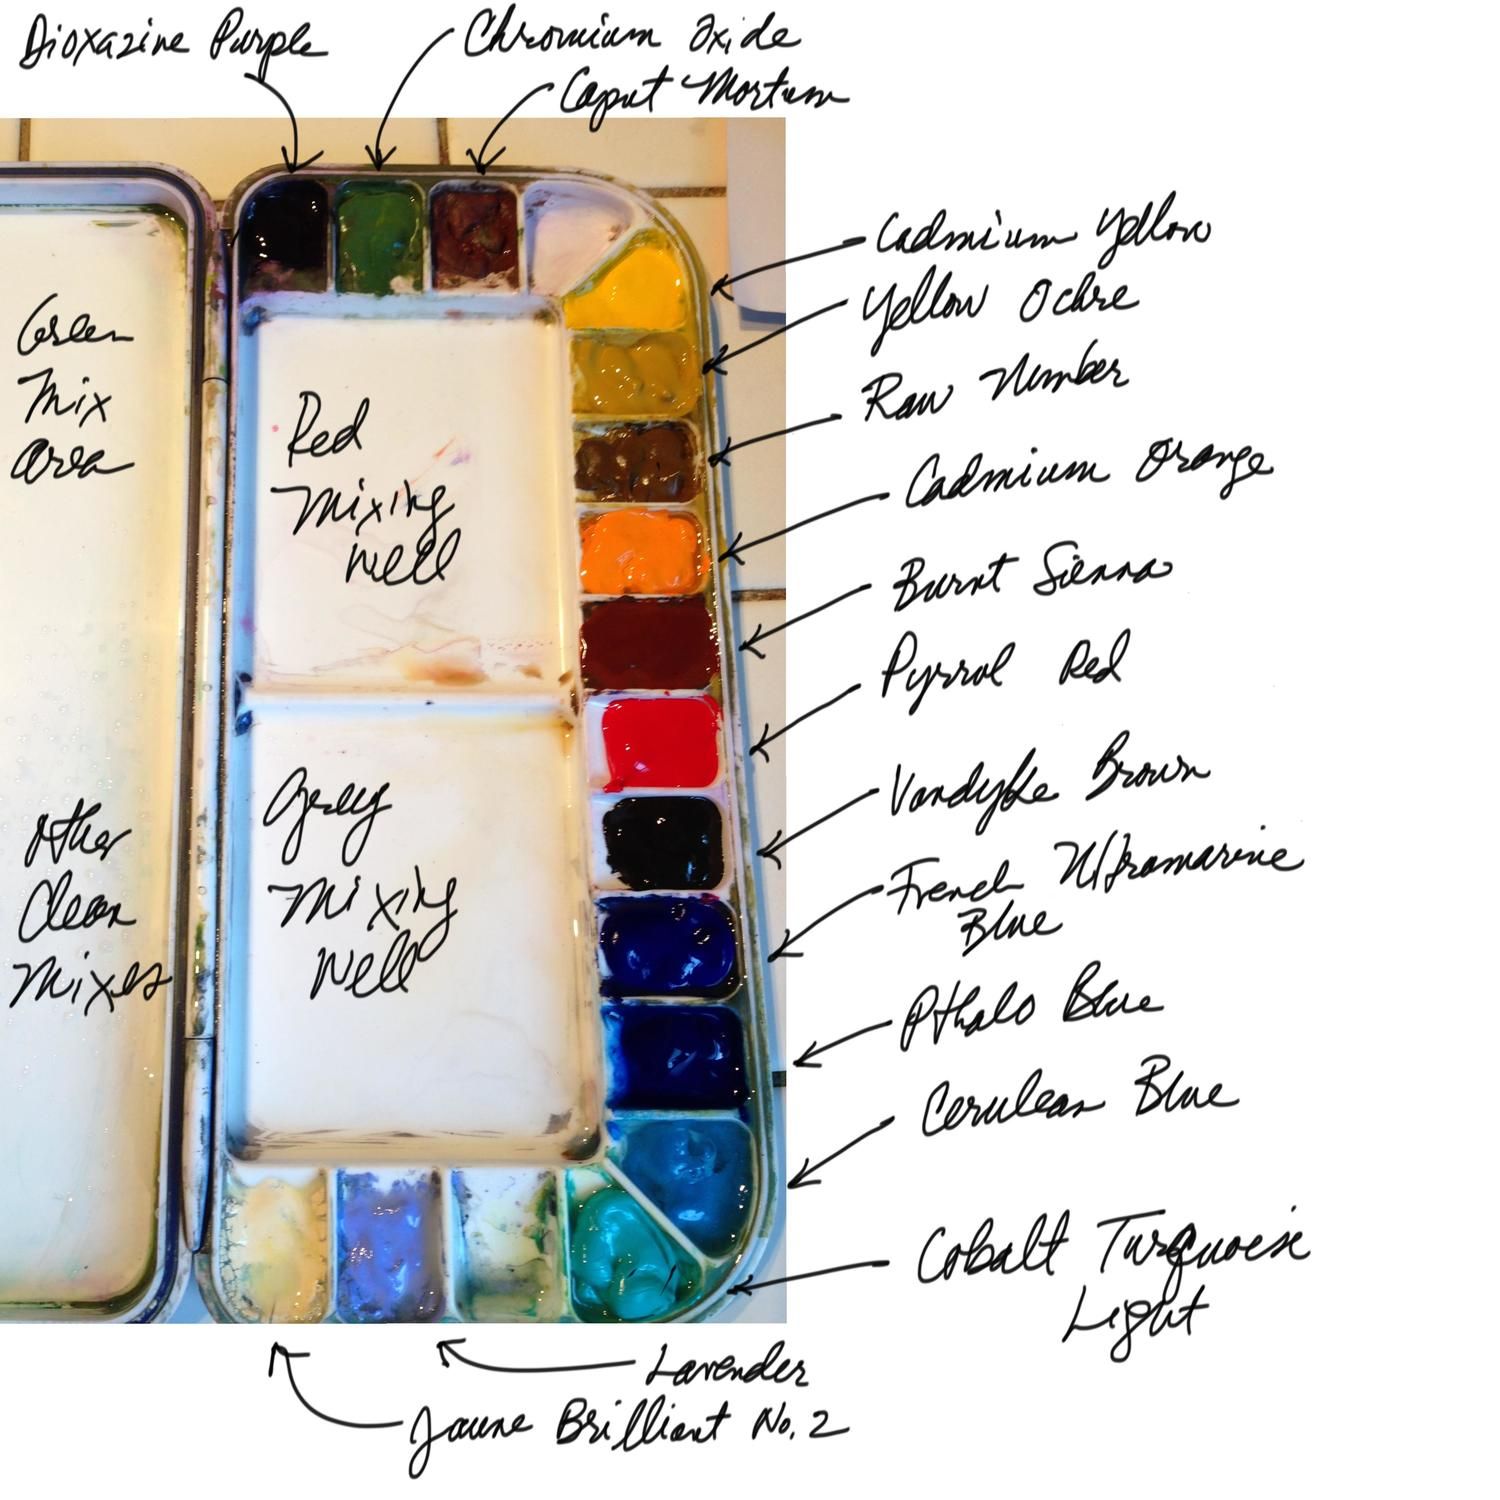 Dioxazine Purple
Chromium Oxide
Caput Mortum
Cadmium Yellow
Yellow Ochre
Raw Umber
Cadmium Orange
Burnt Sienna
Pyrrol Red
Vandyke Brown
French Ultramarine
Blue
Pthalo Blue
Cerulean Blue
Cobalt Turquoise
Light
Lavender
Jaune Brilliant No. 2
Green
Mix
Area
Other
Clean
Mixes
Red
Mixing
Well
Grey
Mixing
Well